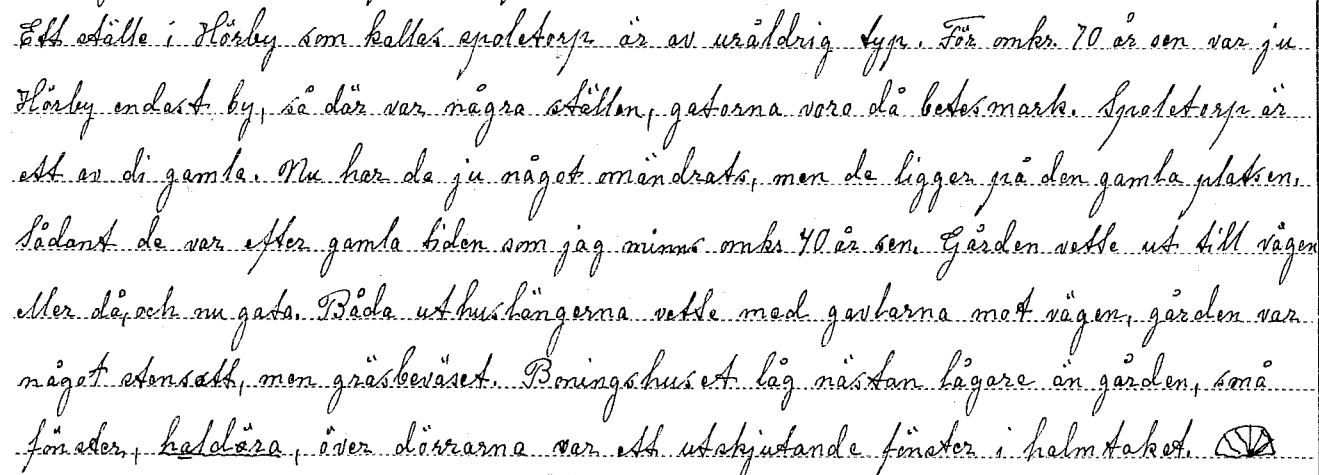 Ett ställe i Hörby som kallas spoletorp är av uråldrig typ. För omkr. 70 år sen var ju
Hörby endast by, så där var några ställen, gatorna voro då betesmark. Spoletorp är
ett av di gamla. Nu har de ju något omändrats, men de ligger på den gamla platsen.
Sådant de var efter gamla tiden som jag minns omkr 40 år sen. Gården vette ut till vägen
eller då, och nu gata. Båda uthuslängerna vette med gavlarna mot vägen, gården var
något stensatt, men gräsbeväxet. Boningshuset låg nästan lägare än gården, små
fönster, haldöra, över dörrarna var ett utskjutande fönster i halmtaket.